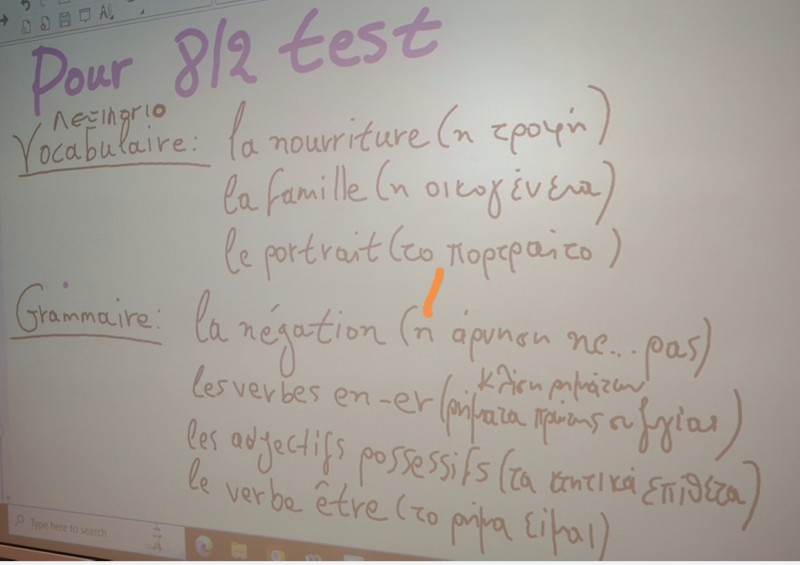 Pour 8/2 test
Λεξιλόγιο
Vocabulaire: la nourriture (η τροφή)
la famille (η οικογένεια)
le portrait (το πορτραίτο)
Grammaire: la négation (η άρνηση ne... pas)
κλίση ρημάτων
les verbes en -er (ρήματα πρώτης συζυγίας)
les adjectifs possessifs (τα κτητικά επίθετα)
le verbe être (το ρήμα είμαι)
Type here to search